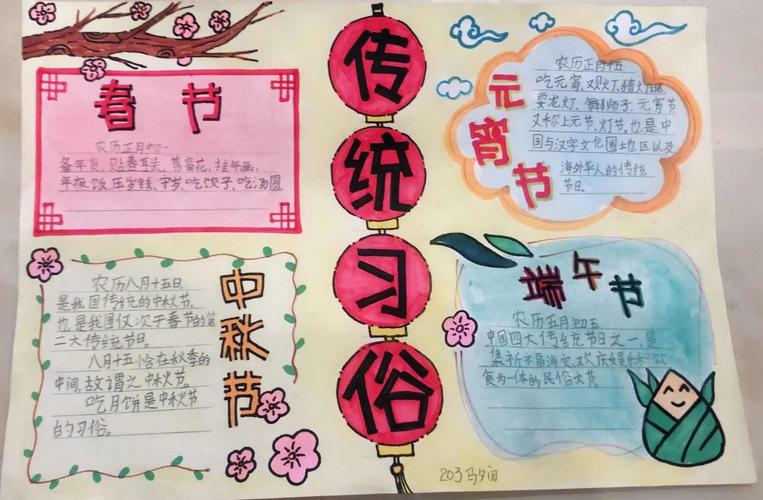 传统习俗
春节
农历正月初一
备年货、贴春联、剪窗花、挂年画、
年夜饭、压岁钱、守岁、吃饺子、吃汤圆
元宵节
农历正月十五
吃元宵、观灯、猜灯谜
耍龙灯、舞狮子、元宵节
又称上元节、灯节,也是中
国与汉字文化圈土地区以及
海外华人的传统
节日。
中秋节
农历八月十五日,
是我国传统的中秋节,
也是我国仅次于春节的第
二大传统节日。
八月十五恰在秋季的
中间,故谓之中秋节。
吃月饼是中秋节
的习俗。
端午节
农历五月初五
中国四大传统节日之一,是
集祈福消灾、欢庆娱乐饮
食为一体的民俗大节
203马夕